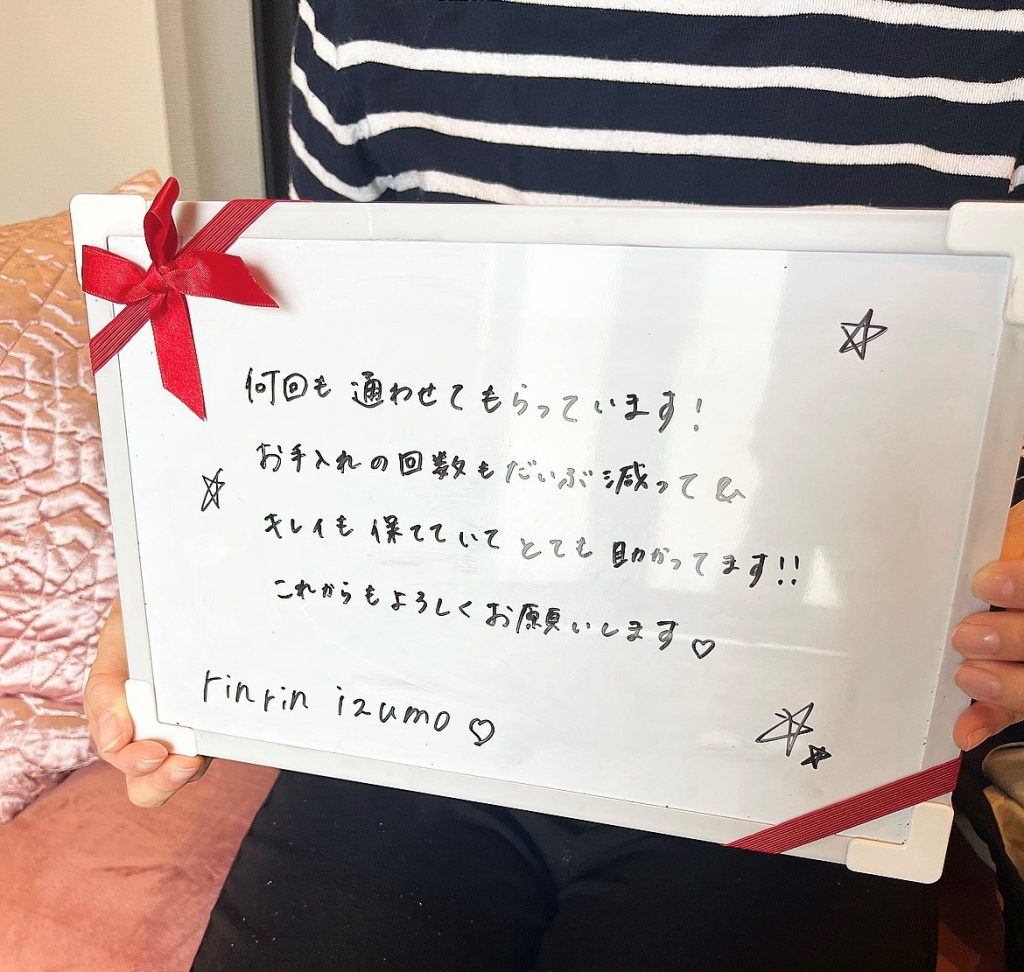 何回も通わせてもらっています!
お手入れの回数もだいぶ減って&
キレイも保てていてとても助かってます!!
これからもよろしくお願いします♡
rinrin izumo♡